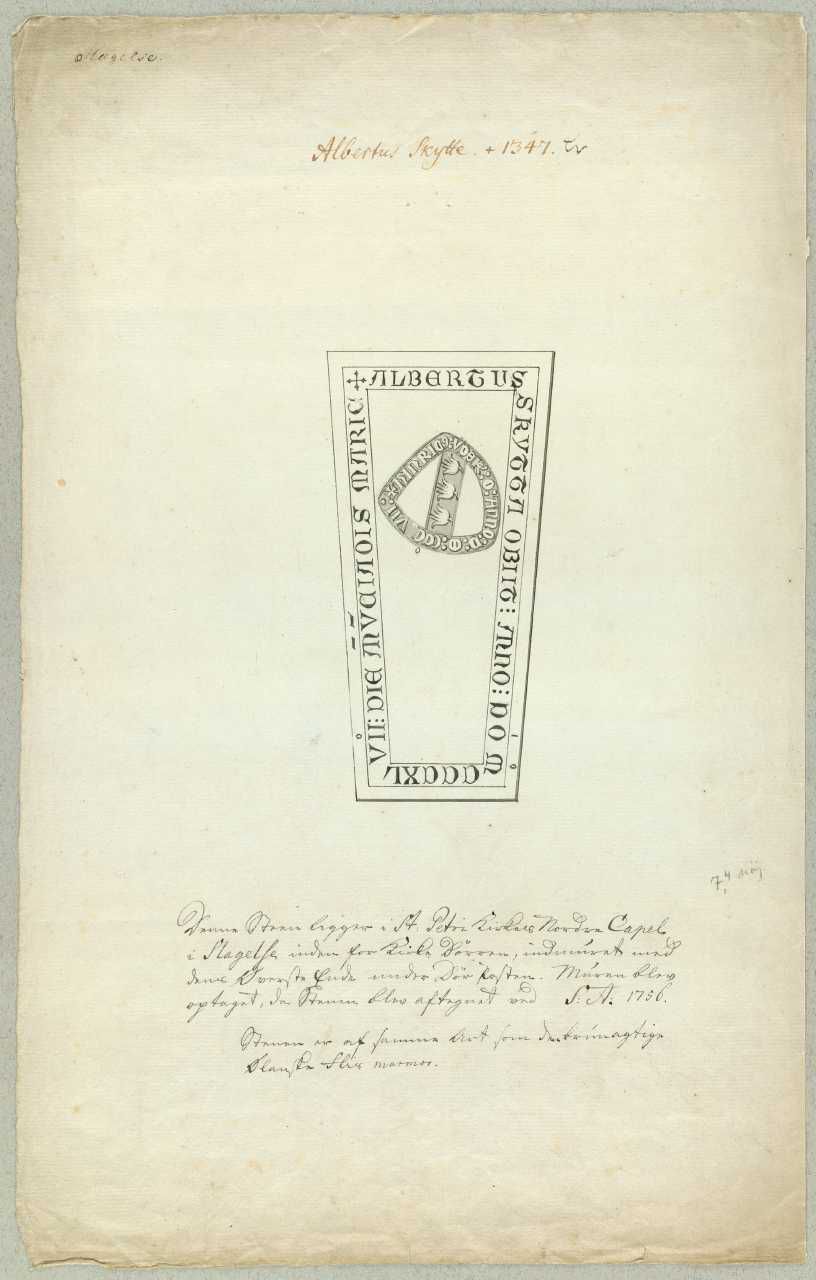 Slagelse.
Albertus Skytte. + 1347.
✠ ALBERTUS
SKYTTA OBIIT: ANNO: DO M
CCCXL
VII: DIE
MATRIC
ANNO: D: M: CCC VII:
7" høj
Denne Steen ligger i St. Petri Kirkes Nordre Capel
i Slagelse inden for Kirke Dörren, indmuret med
dens Överste Ende under Dör Posten. Muren blev
optaget, da Stenen blev aftegnet ved S: A: 1756.
Stenen er af samme Art som den
Flis marmor.